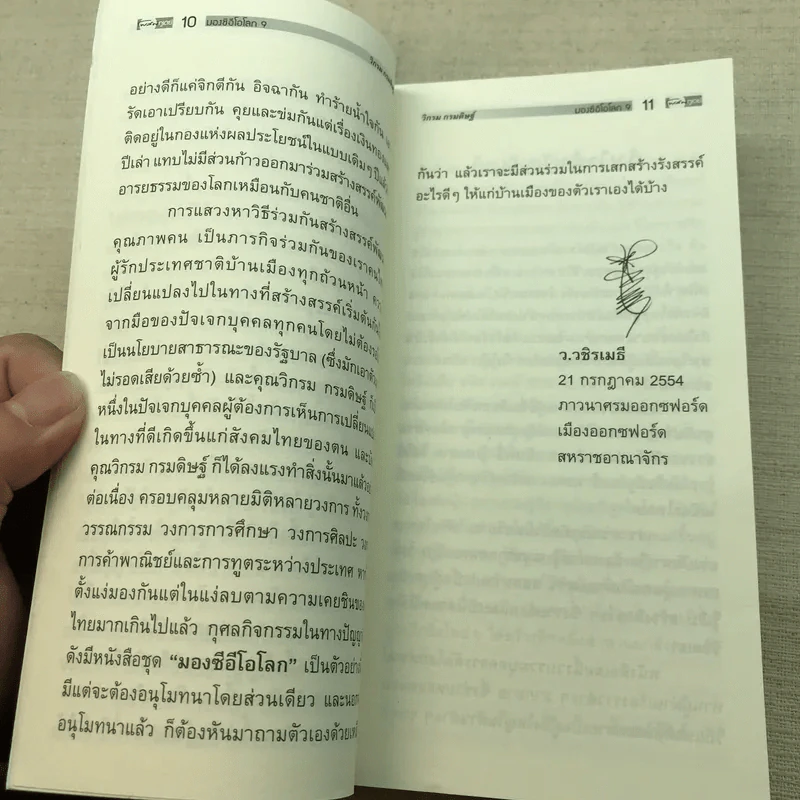 10 มองซีอีโอโลก 9
วิกรม
อย่างดีก็แค่จิกตีกัน อิจฉากัน ทำร้ายน้ำใจกัน
รัดเอาเปรียบกัน คุยและข่มกันแต่เรื่องเงินทอง
ติดอยู่ในกองแห่งผลประโยชน์ในแบบเดิมๆ ปีแล้ว
ปีเล่า แทบไม่มีส่วนก้าวออกมาร่วมสร้างสรรค์
อารยธรรมของโลกเหมือนกับคนชาติอื่น
การแสวงหาวิธีร่วมกันสร้างสรรค์
คุณภาพคน เป็นภารกิจร่วมกันของเรา
ผู้รักประเทศชาติบ้านเมืองทุกถ้วนหน้า
เปลี่ยนแปลงไปในทางที่สร้างสรรค์เริ่มต้น
จากมือของปัจเจกบุคคลทุกคนโดยไม่ต้อง
เป็นนโยบายสาธารณะของรัฐบาล (ซึ่งมักเอาตัว
ไม่รอดเสียด้วยซ้ำ) และคุณวิกรม กรมดิษฐ์
หนึ่งในปัจเจกบุคคลผู้ต้องการเห็นการเปลี่ยน
ในทางที่ดีเกิดขึ้นแก่สังคมไทยของตน
คุณวิกรม กรมดิษฐ์ ก็ได้ลงแรงทำสิ่งนั้นมาแล้ว
ต่อเนื่อง ครอบคลุมหลายมิติหลายวงการ
วรรณกรรม วงการการศึกษา วงการศิลปะ
การค้าพาณิชย์และการทูตระหว่างประเทศ
ตั้งแง่มองกันแต่ในแง่ลบตามความเคยชินของ
ไทยมากเกินไปแล้ว กุศลกิจกรรมในทางปัญญา
ดังมีหนังสือชุด “มองซีอีโอโลก” เป็นตัวอย่าง
มีแต่จะต้องอนุโมทนาโดยส่วนเดียว
อนุโมทนาแล้ว ก็ต้องหันมาถามตัวเองด้วย
วิกรม กรมดิษฐ์ มองซีอีโอโลก 9 11
กันว่า แล้วเราจะมีส่วนร่วมในการเสกสร้างรังสรรค์
อะไรดีๆ ให้แก่บ้านเมืองของตัวเราเองได้บ้าง
ว.วชิรเมธี
21 กรกฎาคม 2554
ภาวนาศรมออกซฟอร์ด
เมืองออกซฟอร์ด
สหราชอาณาจักร